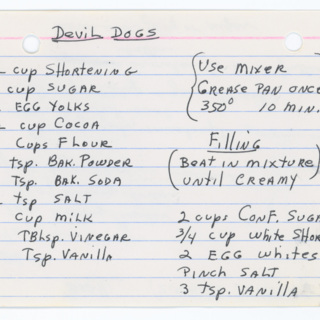 Devil Dogs
cup SHORTENING
cup SUGAR
EGG YOLKS
cup COCOA
Cups FLOUR
tsp. BAK. POWDER
Tsp. BAK. SODA
tsp SALT
cup MILK
TBLsp. VINEGAR
Tsp. VANILLA
USE MIXER
GREASE PAN ONCE
350° 10 MIN.
Filling
(BEAT IN MIXTURE
UNTIL CREAMY)
2 cups CONF. SUGA
3/4 cup white SHOR
2 EGG whites
PINCH SALT
3 tsp. VANILLA